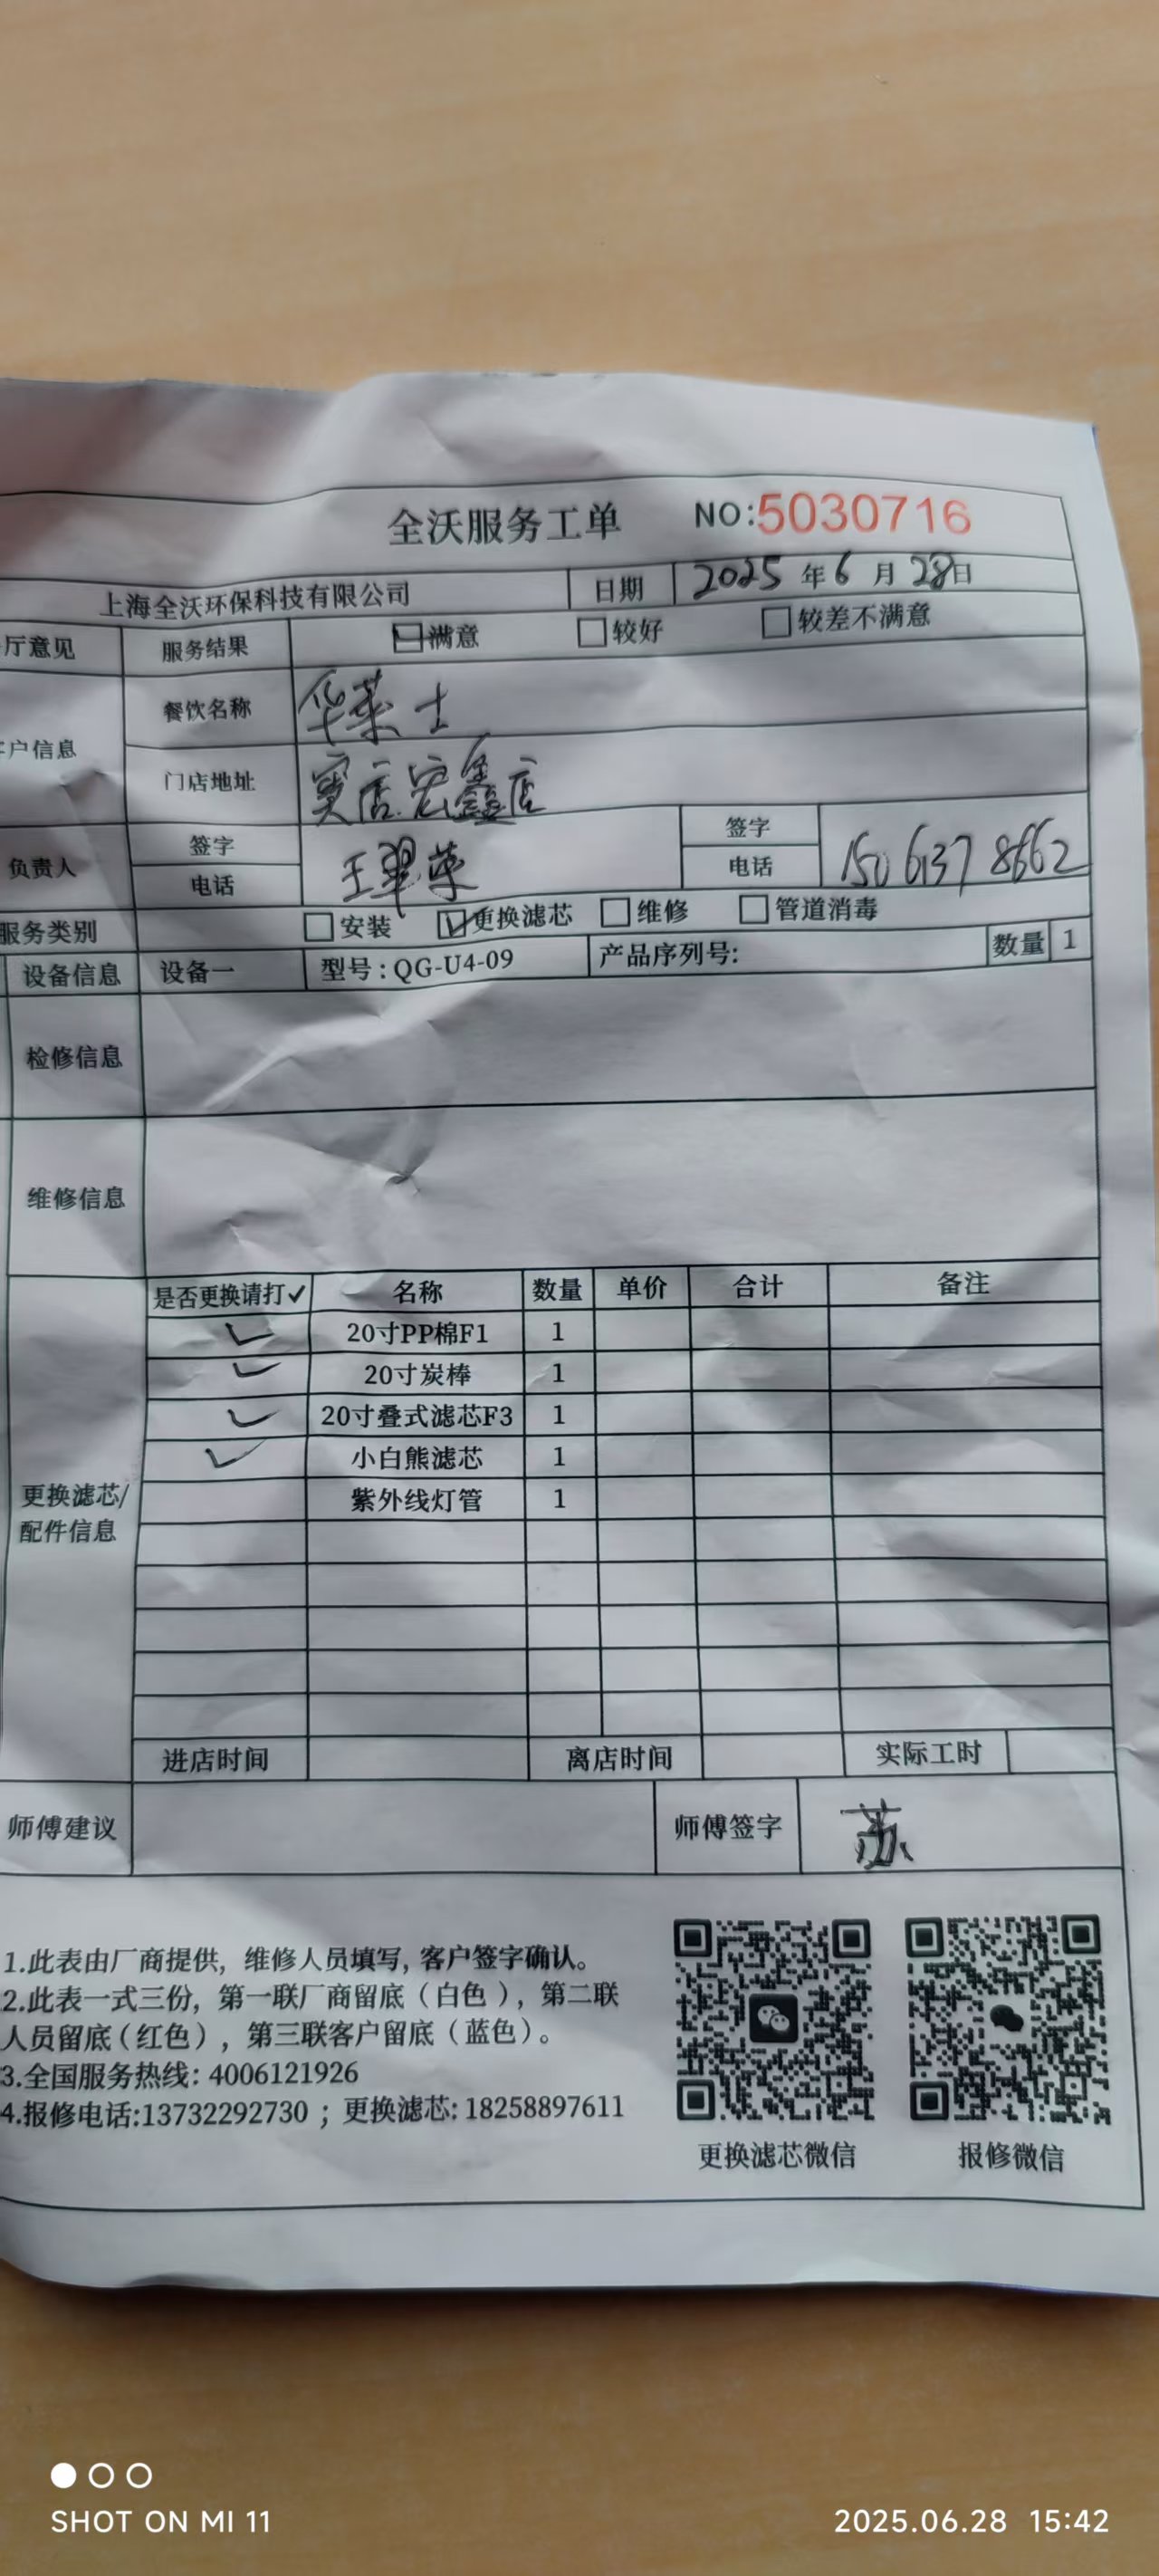 全沃服务工单 NO:5030716
上海全沃环保科技有限公司 日期 2025年6月28日
厅意见 服务结果 满意 较好 较差不满意
户信息 餐饮名称 华莱士
门店地址 窦店宏鑫店
负责人 签字 王翠荣 签字
电话 电话 15061378662
服务类别 安装 更换滤芯 维修 管道消毒
设备信息 设备一 型号:QG-U4-09 产品序列号: 数量 1
检修信息
维修信息
是否更换请打✓ 名称 数量 单价 合计 备注
✓ 20寸PP棉F1 1
✓ 20寸炭棒 1
✓ 20寸叠式滤芯F3 1
✓ 小白熊滤芯 1
紫外线灯管 1
更换滤芯/
配件信息
进店时间 离店时间 实际工时
师傅建议 师傅签字 苏
1.此表由厂商提供,维修人员填写,客户签字确认。
2.此表一式三份,第一联厂商留底(白色),第二联
人员留底(红色),第三联客户留底(蓝色)。
3.全国服务热线: 4006121926
4.报修电话:13732292730 ; 更换滤芯: 18258897611
更换滤芯微信 报修微信
SHOT ON MI 11 2025.06.28 15:42